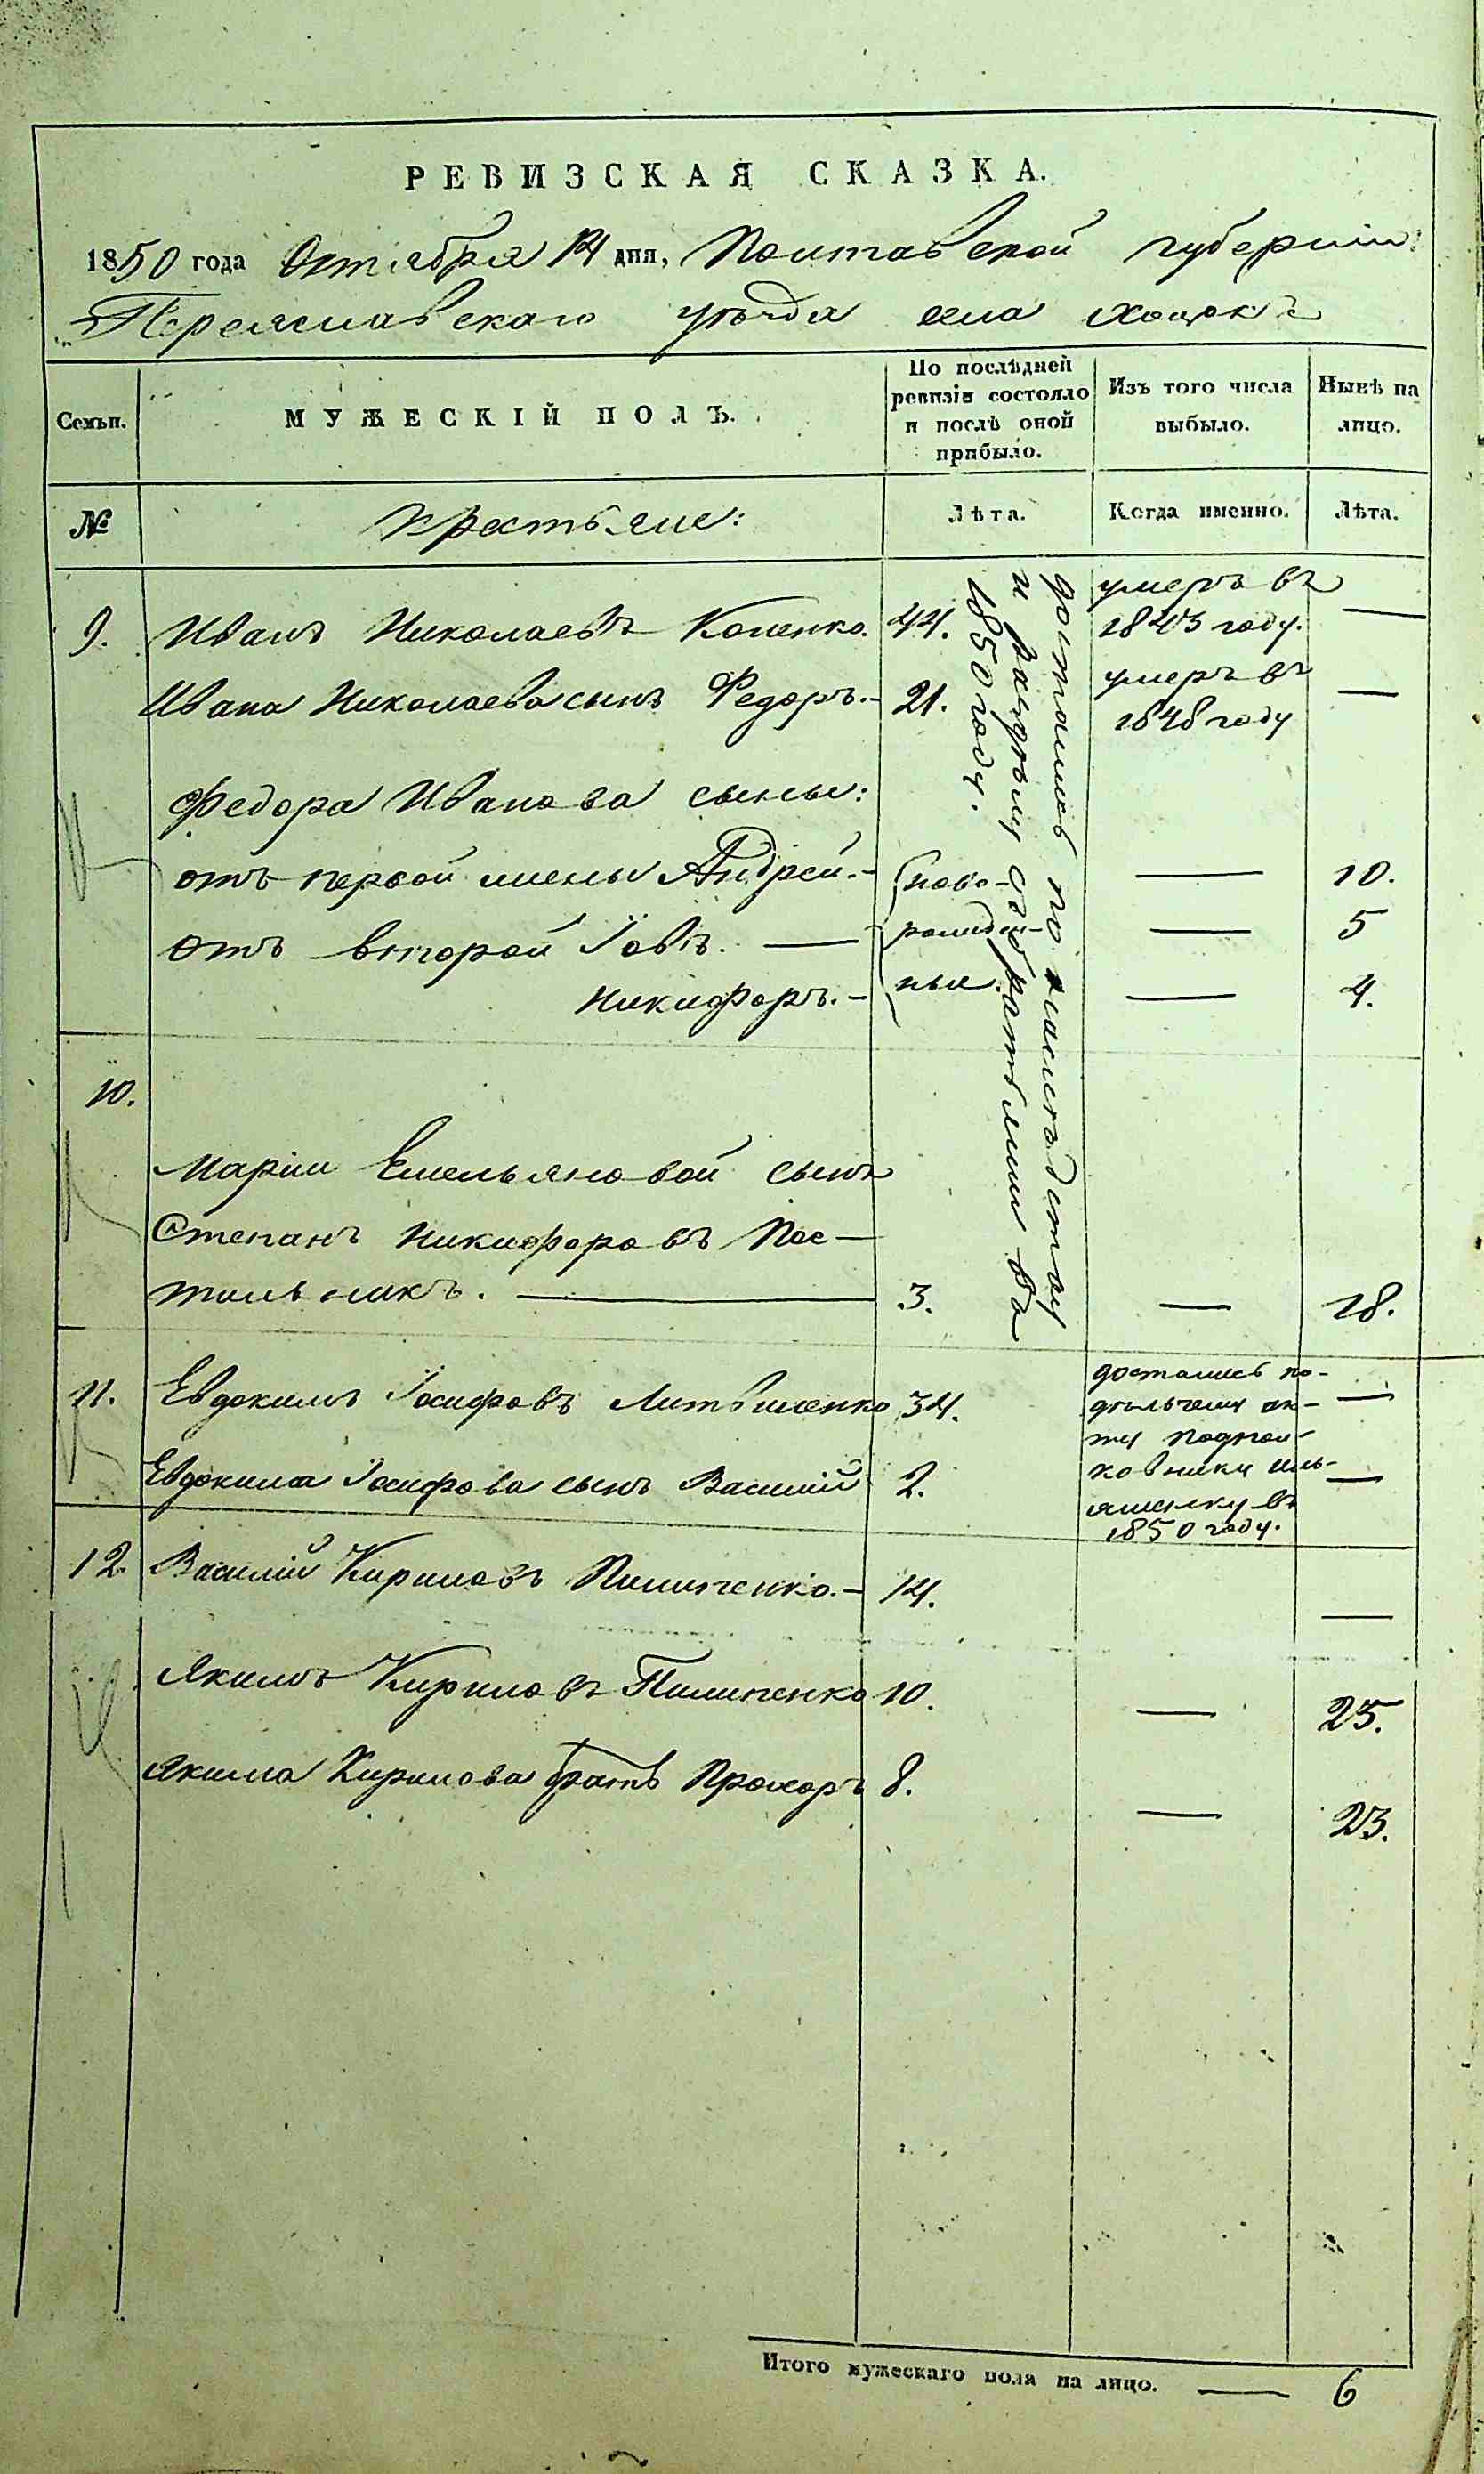 РЕВИЗСКАЯ СКАЗКА.
1850 года Октября 14 дня, Полтавской губерніи
Переяславскаго уѣзда села Хоцокъ
Семьи.
МУЖЕСКІЙ ПОЛЪ.
По послѣдней ревизіи состояло и послѣ оной прибыло.
Изъ того числа выбыло.
Нынѣ на лицо.
№
Крестьяне:
Лѣта.
Когда именно.
Лѣта.
достались по наслѣдству
и раздѣлу съ братьями въ
1850 году.
9. Иванъ Николаевъ Копенко. 44. умеръ въ 1843 году. —
Ивана Николаева сынъ Федоръ. — 21. умеръ въ 1848 году —
Федора Иванова сыны:
отъ первой жены Андрей. — ново- — 10.
отъ второй Іовъ. — рожден- — 5
Никифоръ. — ные. — 4.
10.
Маріи Емельяновой сынъ
Степанъ Никифоровъ Пос-
тильникъ. — 3. — 18.
11. Евдокимъ Іосифовъ Литвиненко 34. —
Евдокима Іосифова сынъ Василій 2. —
достались по-
дѣльчему ак-
ту Подпол-
ковнику Иль-
яшенку въ
1850 году.
12. Василій Кириловъ Пилипенко. — 14. —
Якимъ Кириловъ Пилипенко 10. — 25.
Якима Кирилова братъ Прохоръ 8. — 23.
Итого мужескаго пола на лицо. — 6